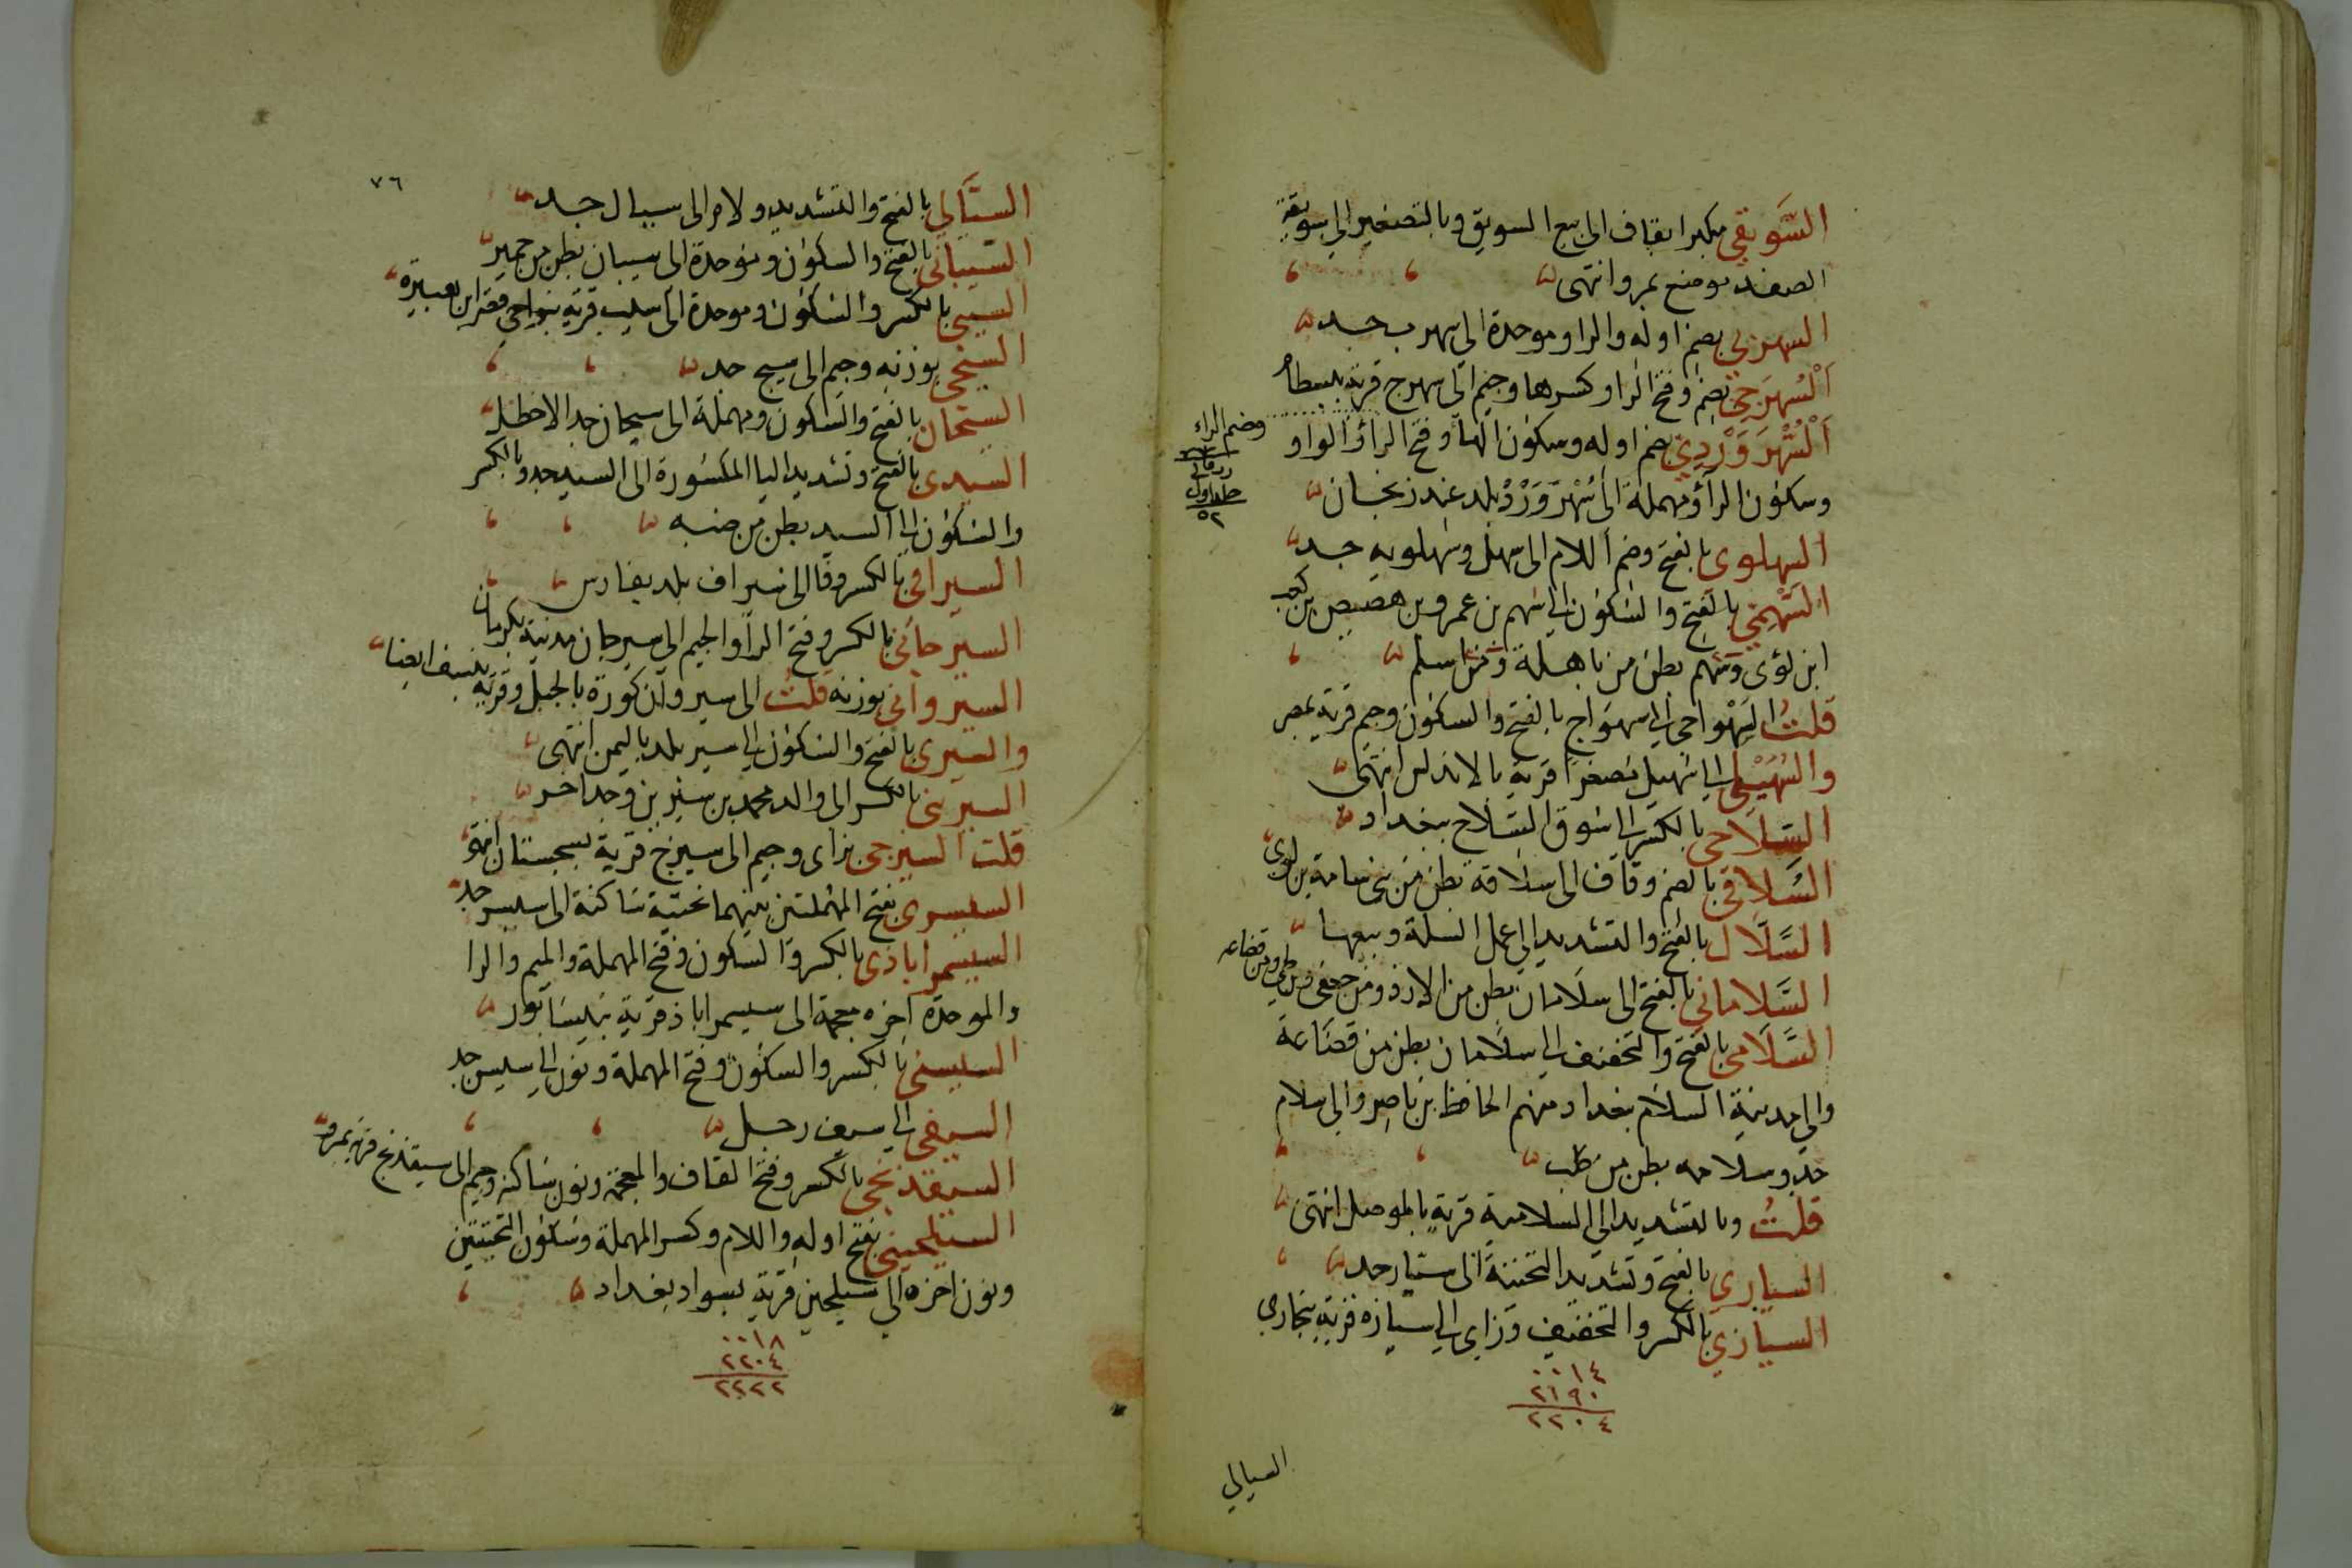 السَّويقي مكبرا بقاف الى بيع السويق وبالتصغير الى سويقة
الصغد موضع بمرو انتهى
السهربي بضم اوله والرا وموحدة الى سهرب جد
اَلْسُهرَجي بضم وفتح الرا وكسرها وجيم الى سهرج قرية ببسطام
اَلْسُّهْرَوَرْدِي بضم اوله وسكون الها وفتح الراء والواو
وضم الراء
وسكون الراء ومهملة الى سُهْرَوَرْدْ بلد عند زنجان
السهلوى بالفتح وضم اللام الى سهل وسهلويه جد
السَّهْمي بالفتح والسكون الى سهم بن عمرو بن هصيص بن كعب
ابن لؤى وسهم بطن من باهلة ومن اسلم
قلتُ السَهْواجى الى سهواج بالفتح والسكون وجيم قرية بمصر
والسُهَيْلى الى سهيل مصغراً قرية بالاندلس انتهى
السِلاحى بالكسر الى سوق السلاح ببغداد
السُّلاقي بالضم وقاف الى سلاقة بطن من بنى سامة بن لوى
السَّلَّال بالفتح والتشديد الى عمل السلة وبيعها
السَّلاماني بالفتح الى سلامان بطن من الازد ومن جعفى ومن طي ومن قضاعه
السَّلَامى بالفتح والتخفيف الى سلامان بطن من قضاعة
والى مدينة السلام بغداد منهم الحافظ بن ناصر والى سلام
جد وسلامه بطن من كلب
قلتُ وبالتشديد الى السلامية قرية بالموصل انتهى
السيارى بالفتح وتشديد التحتية الى سيار جد
السيازي بالكسر والتخفيف وزاي الى سيازه قرية ببخارى
٠٠١٤
٢١٩٠
٢٢٠٤
السيالي
٧٦
السيَّالي بالفتح والتشديد ولام الى سيال جد
السيبانى بالفتح والسكون وموحدة الى سيبان بطن من حمير
السيبى بالكسر والسكون وموحدة الى سيب قرية بنواحي قصر ابن هبيرة
السيجى بوزنه وجيم الى سيج جد
السيحان بالفتح والسكون ومهملة الى سيحان جد الاخطل
السيدى بالفتح وتشديد اليا المكسورة الى السيد جد وبالكسر
والسكون الى السيد بطن من ضبه
السيرافى بالكسر وفا الى سيراف بلد بفارس
السيرجاني بالكسر وفتح الرا والجيم الى سيرجان مدينة بكرمان
السيروانى بوزنه قلتُ الى سيروان كورة بالجبل وقرية بنسف ايضا
والسيرى بالفتح والسكون الى سير بلد باليمن انتهى
السيرينى بالكسر الى والد محمد بن سيرين وجد اخر
قلت السيزجى بزاى وجيم الى سيزج قرية بسجستان انتهى
السيسرى بفتح المهملتين بينهما تحتية ساكنة الى سيسر جد
السيسمراباذى بالكسر والسكون وفتح المهملة والميم والرا
والموحدة اخره معجمة الى سيسمراباذ قرية بنيسابور
السيسنى بالكسر والسكون وفتح المهملة ونون الى سيسن جد
السيفى الى سيف رجل
السيقذنجى بالكسر وفتح القاف والمعجمة ونون ساكنه وجيم الى سيقذنج قرية بمرو
السيلحينى بفتح اوله واللام وكسر المهملة وسكون التحتيتين
ونون اخره الى سيلحين قرية بسواد بغداد
٠٠١٨
٢٢٠٤
٢٢٢٢